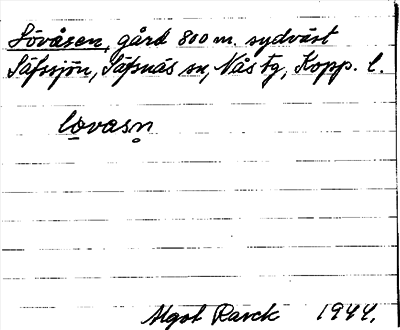 Lövåsen, gård 800 m. sydväst
Säfssjön, Säfsnäs sn, Nås tg, Kopp. l.
lo̲vasn̥
Algot Ravck 1944.